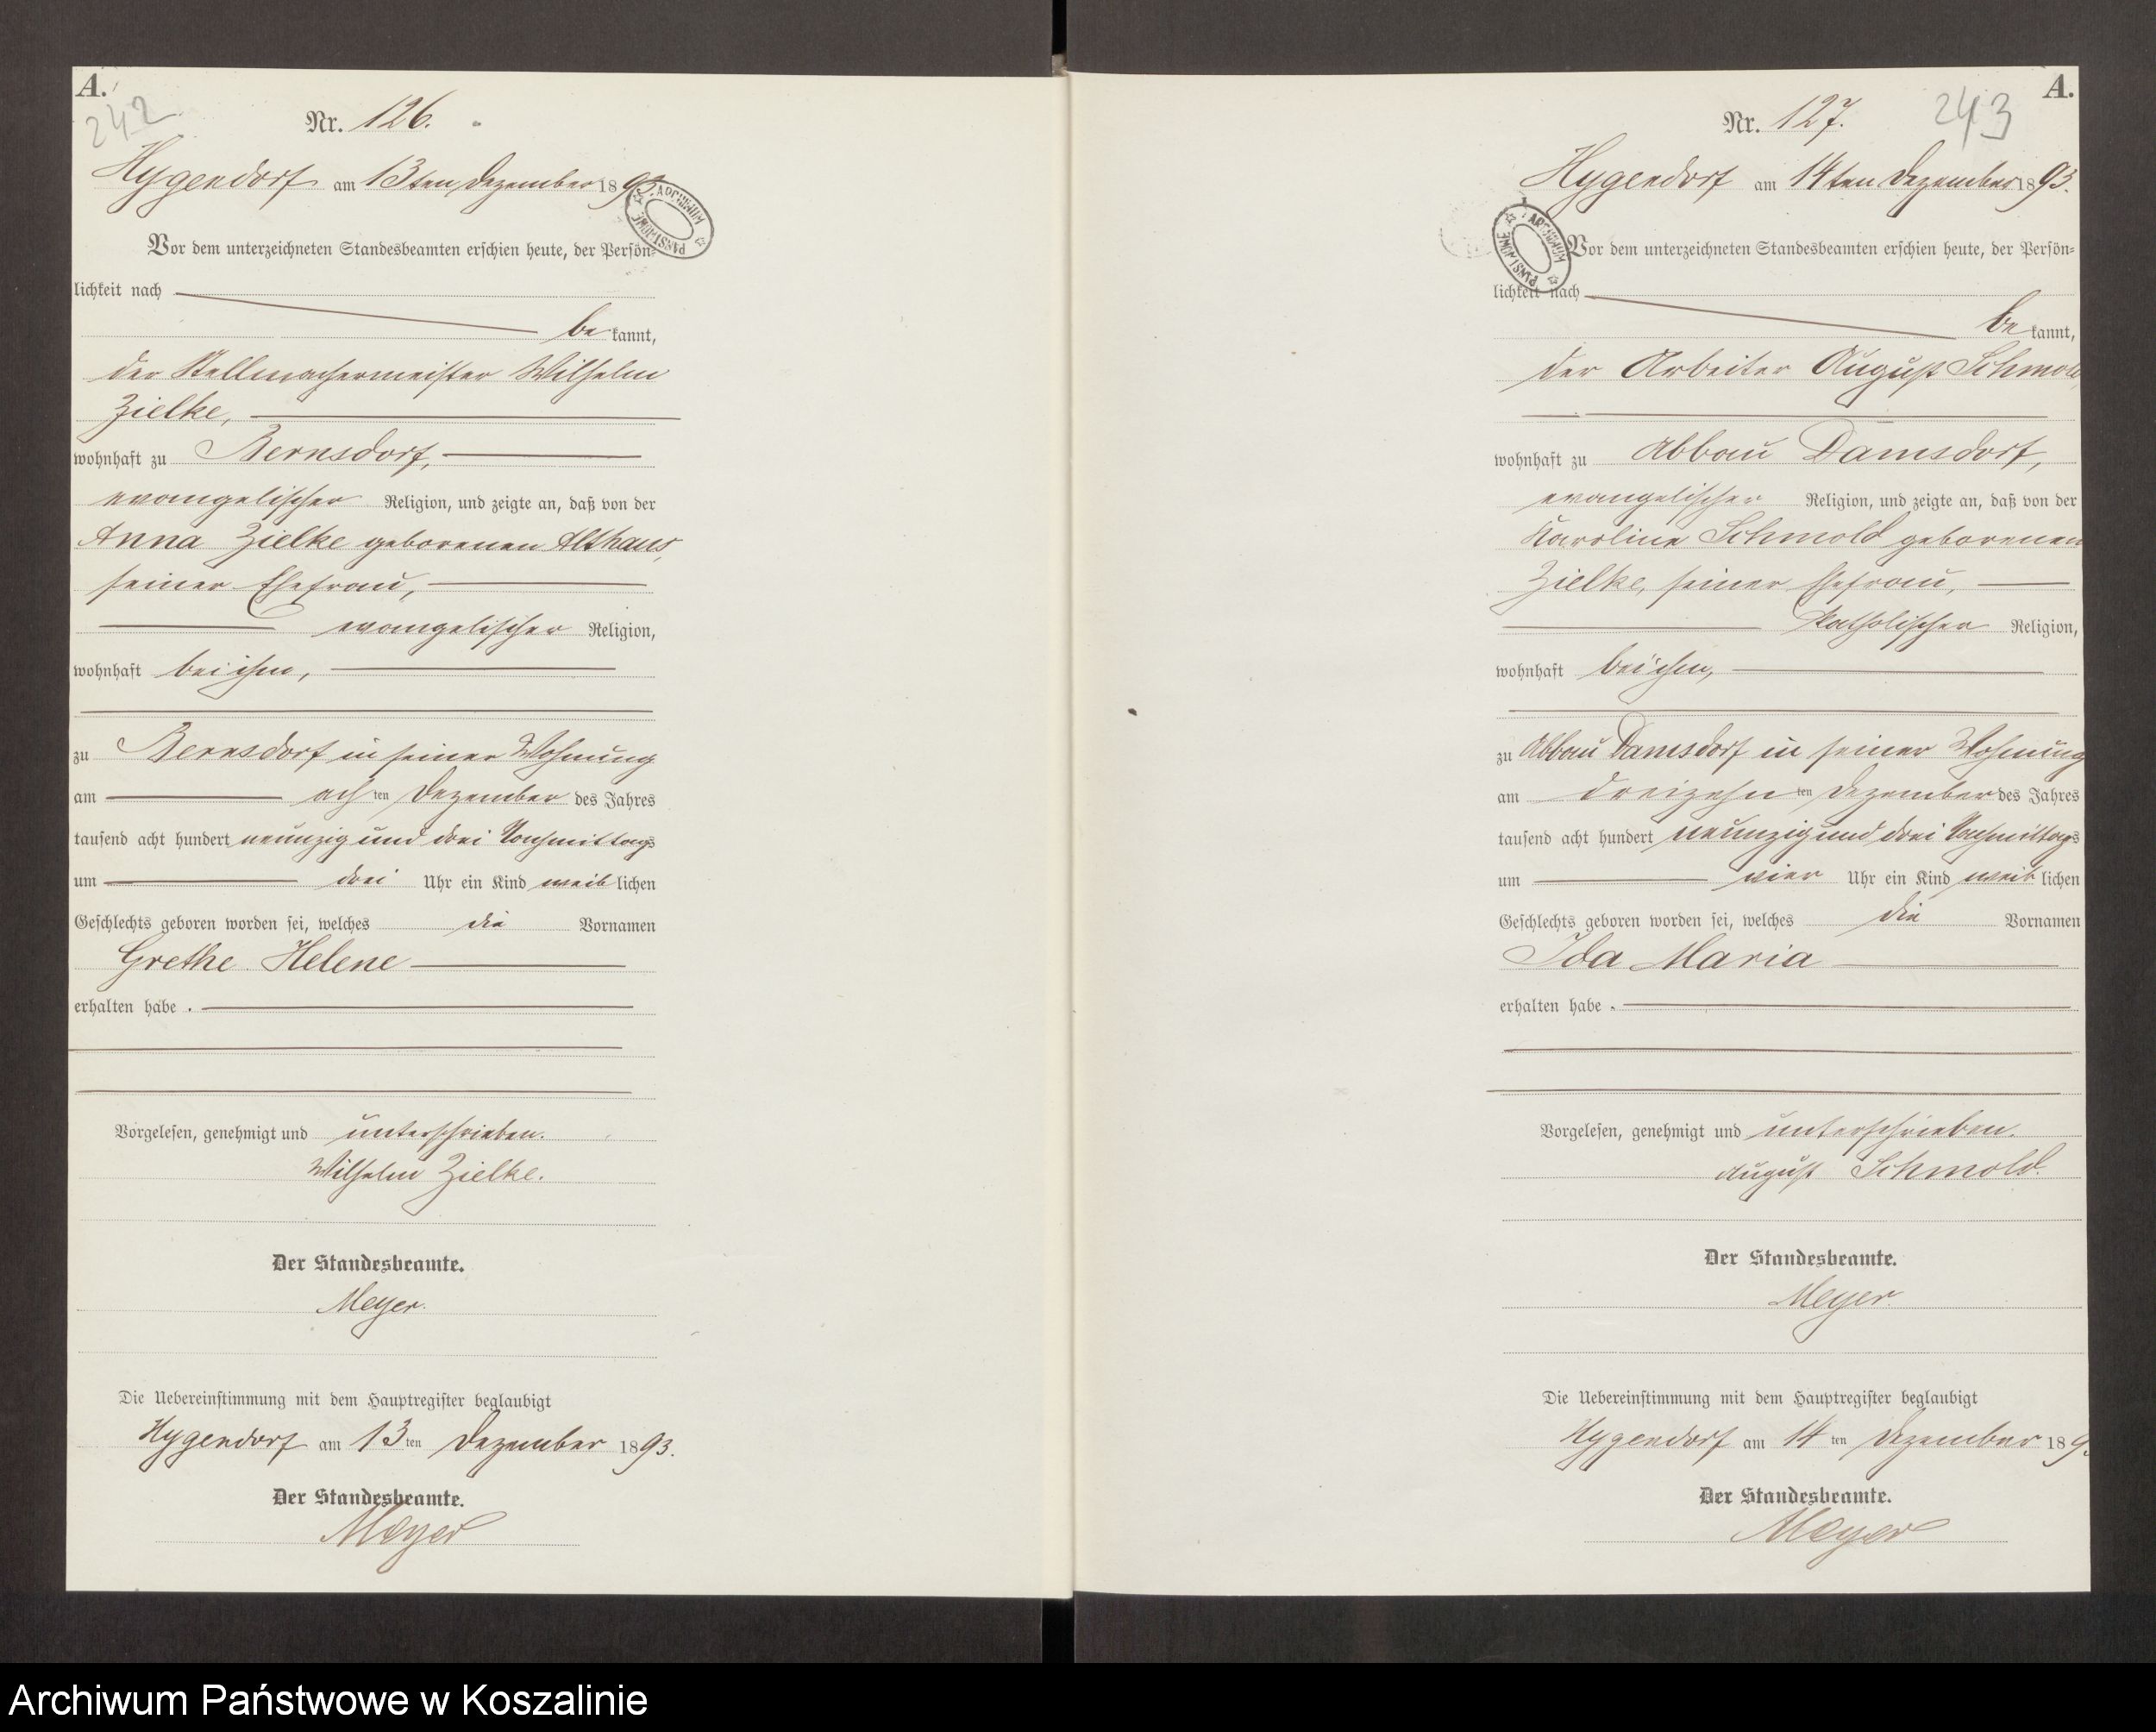 A.
242
Nr. 126.
Hygendorf am 13ten Dezember 1893.
ARCHIWUM PAŃSTWOWE
Vor dem unterzeichneten Standesbeamten erschien heute, der Persön-
lichkeit nach
be kannt,
der Stellmachermeister Wilhelm
Zielke,
wohnhaft zu Bernsdorf,
evangelischer Religion, und zeigte an, daß von der
Anna Zielke geborenen Althaus,
seiner Ehefrau,
evangelischer Religion,
wohnhaft bei ihm,
zu Bernsdorf in seiner Wohnung
am ach ten Dezember des Jahres
tausend acht hundert neunzig und drei Nachmittags
um drei Uhr ein Kind weib lichen
Geschlechts geboren worden sei, welches die Vornamen
Grethe Helene
erhalten habe.
Vorgelesen, genehmigt und unterschrieben.
Wilhelm Zielke.
Der Standesbeamte.
Meyer.
Die Uebereinstimmung mit dem Hauptregister beglaubigt
Hygendorf am 13 ten Dezember 1893.
Der Standesbeamte.
Meyer
A.
243
Nr. 127.
Hygendorf am 14ten Dezember 1893.
ARCHIWUM PAŃSTWOWE
Vor dem unterzeichneten Standesbeamten erschien heute, der Persön-
lichkeit nach
be kannt,
der Arbeiter August Schmold
wohnhaft zu Abbau Damsdorf,
evangelischer Religion, und zeigte an, daß von der
Karoline Schmold geborenen
Zielke, seiner Ehefrau,
katholischer Religion,
wohnhaft bei ihm,
zu Abbau Damsdorf in seiner Wohnung
am dreizehn ten Dezember des Jahres
tausend acht hundert neunzig und drei Nachmittags
um vier Uhr ein Kind weib lichen
Geschlechts geboren worden sei, welches die Vornamen
Ida Maria
erhalten habe.
Vorgelesen, genehmigt und unterschrieben.
August Schmold.
Der Standesbeamte.
Meyer.
Die Uebereinstimmung mit dem Hauptregister beglaubigt
Hygendorf am 14 ten Dezember 189
Der Standesbeamte.
Meyer
Archiwum Państwowe w Koszalinie